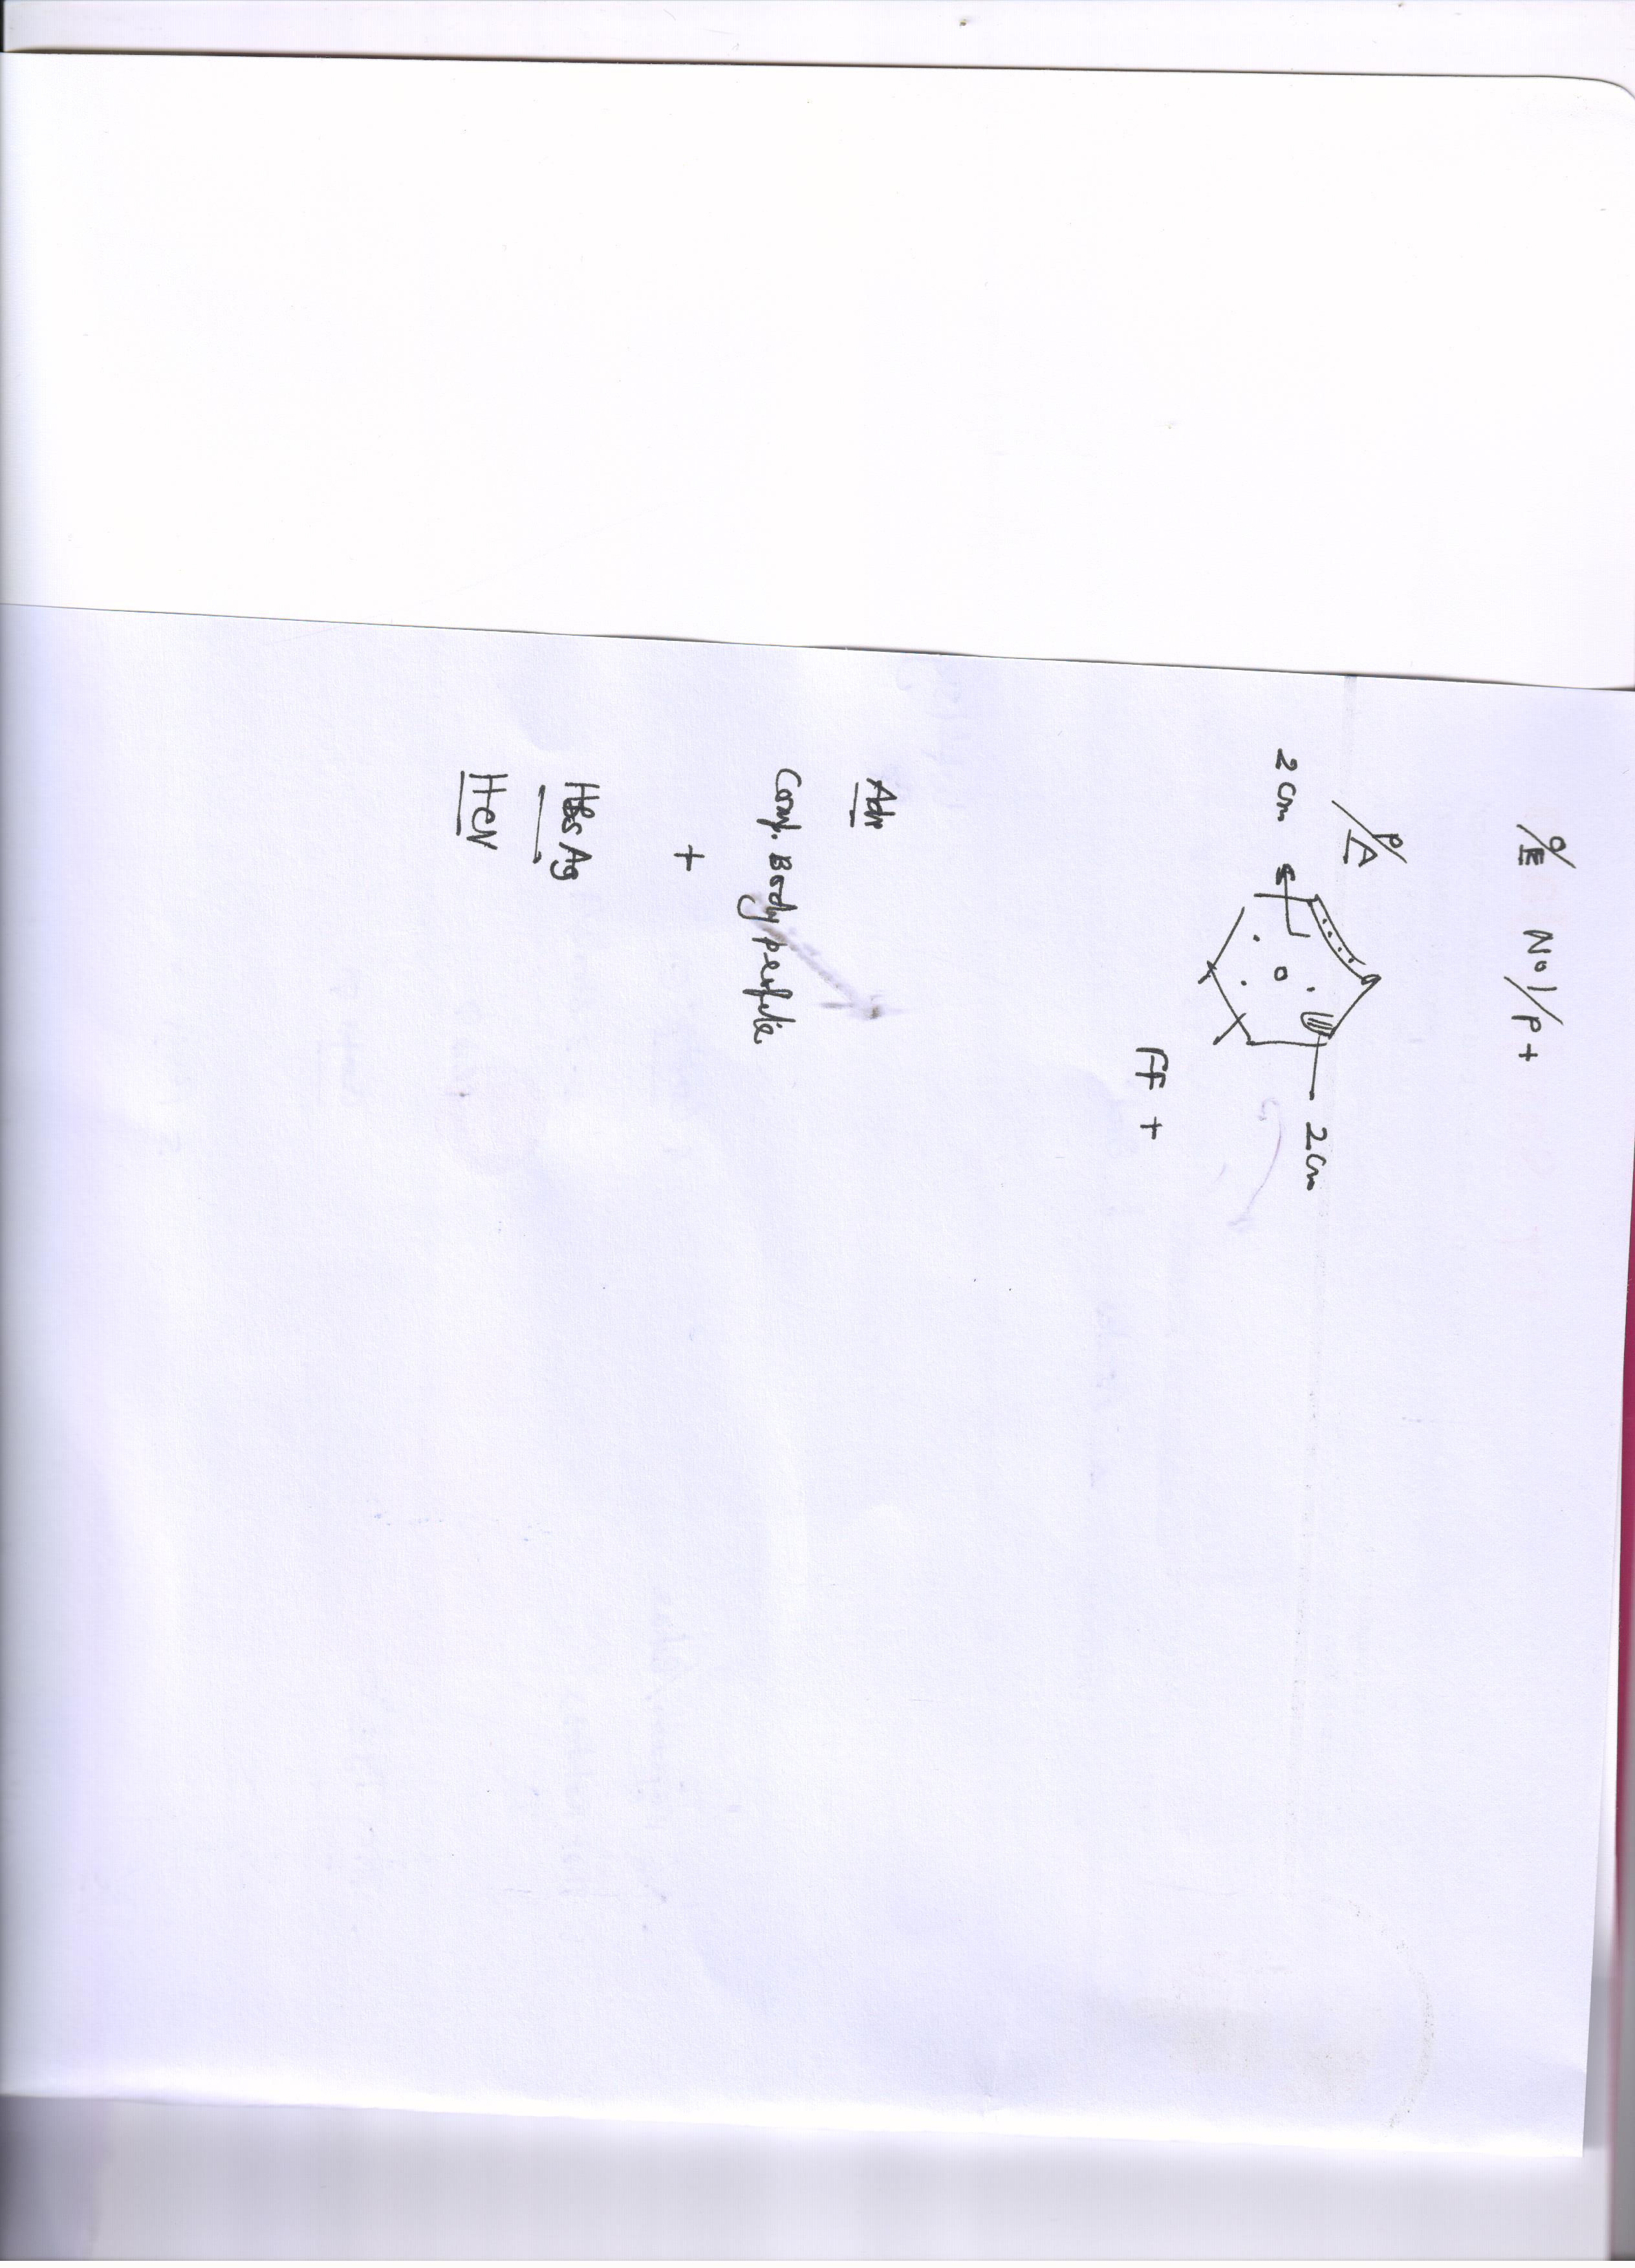 O/E No J/P +
P/A
2 cm
2 cm
FF +
Adv
Comp. Body perfile
+
HBsAg
HCV